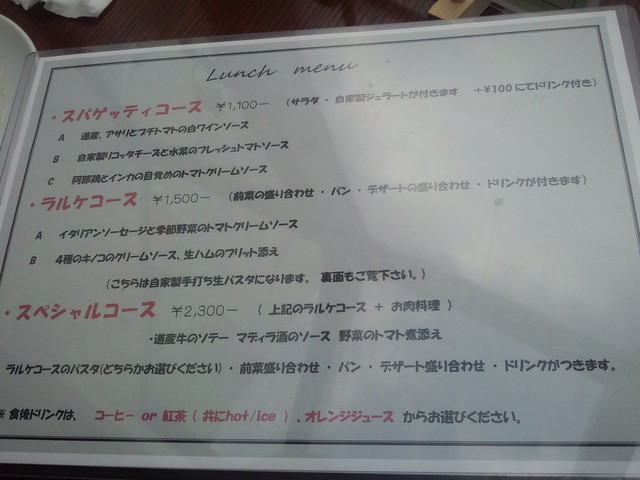 Lunch menu
・スパゲッティコース ￥1,100― (サラダ・自家製ジェラートが付きます +¥100にてドリンク付き)
A 道産、アサリとプチトマトの白ワインソース
B 自家製リコッタチーズと水菜のフレッシュトマトソース
C 阿部鶏とインカの目覚めのトマトクリームソース
・ラルケコース ￥1,500― (前菜の盛り合わせ・パン・デザートの盛り合わせ・ドリンクが付きます)
A イタリアンソーセージと季節野菜のトマトクリームソース
B 4種のキノコのクリームソース、生ハムのフリット添え
(こちらは自家製手打ち生パスタになります。裏面もご覧下さい。)
・スペシャルコース ￥2,300― ( 上記のラルケコース + お肉料理 )
・道産牛のソテー マディラ酒のソース 野菜のトマト煮添え
ラルケコースのパスタ(どちらかお選びください)・前菜盛り合わせ・パン・デザート盛り合わせ・ドリンクがつきます。
※食後ドリンクは、コーヒー or 紅茶 ( 共にhot/ice )、オレンジジュース からお選びください。